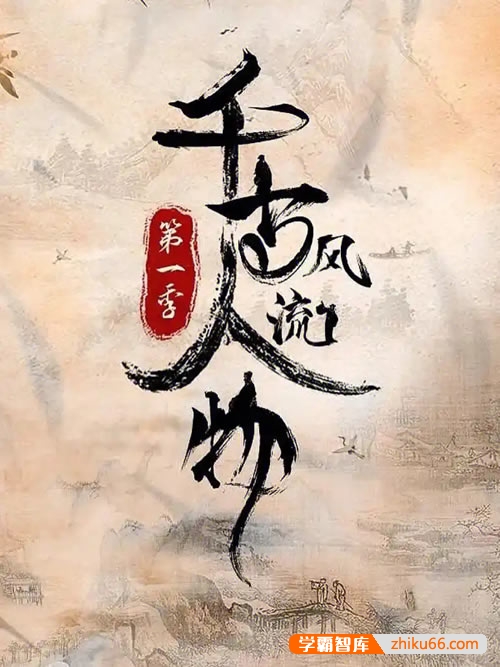 千古风流人物
第一季
学霸智库
zhiku66.com